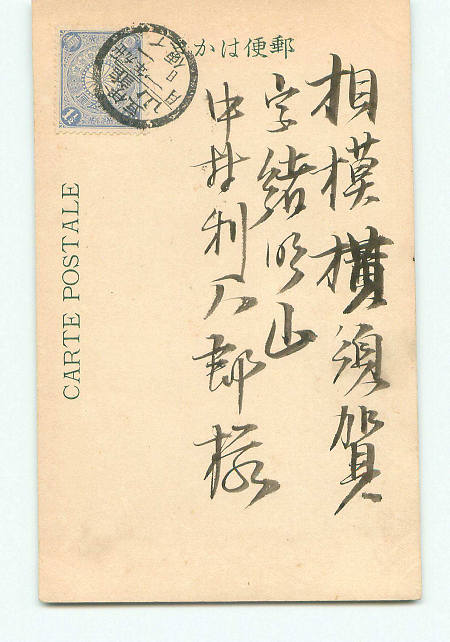 郵便はかき
相模横須賀
字緒明山
中井利八郎様
CARTE POSTALE
1½